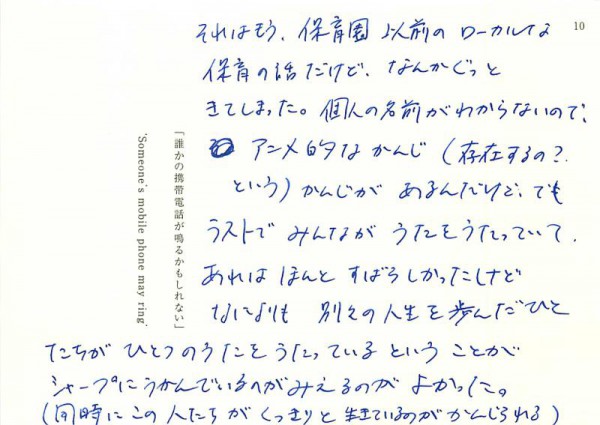 10
それはもう、保育園以前のローカルな
保育の話だけど、なんかぐっと
きてしまった。個人の名前がわからないので、
アニメ的なかんじ(存在するの?
という)かんじが あるんだけど、でも
ラストで みんなが うたをうたっていて、
あれは ほんと すばらしかったけど
なによりも 別々の人生を歩んだひと
たちが ひとつのうたを うたっている ということが
シャープにうかんでいるのがみえるのが よかった。
(同時に この人たちが くっきりと生きているのが かんじられる)
「誰かの携帯電話が鳴るかもしれない」
'Someone's mobile phone may ring'